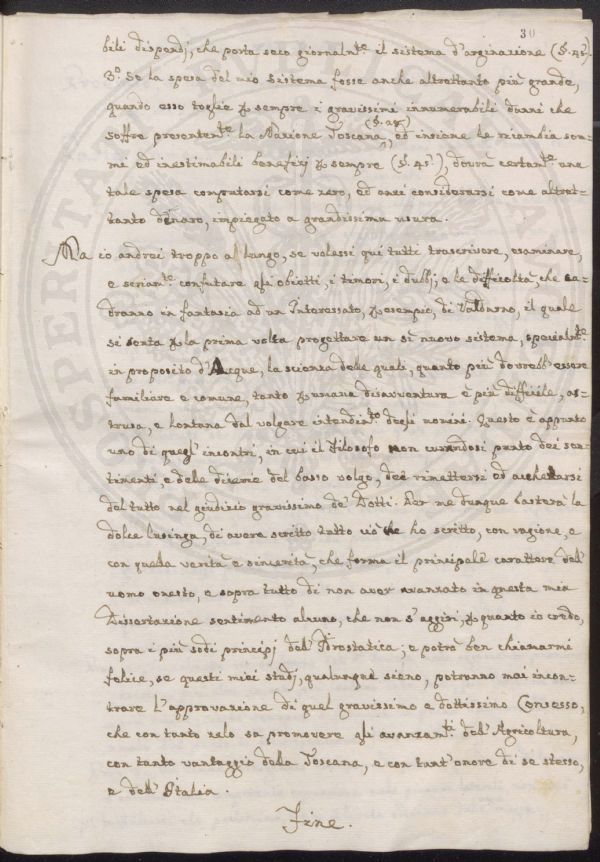 30
bili dispendj, che porta seco giornalm.te il sistema d'arginazione (§. 45).
3.° Se la spesa del mio sistema fosse anche altrettanto più grande,
quando esso toglie p sempre i gravissimi innumerabili danni che
soffre presentem.te la Nazione Toscana (§. 28), ed insieme le ricambia som-
mi ed inestimabili benefizj p sempre (§. 45), dovrà certam.te una
tale spesa computarsi come zero, ed anzi considerarsi come altret-
tanto denaro, impiegato a grandissima usura.
Ma io andrei troppo al lungo, se volessi qui tutti trascrivere, esaminare,
e seriam.te confutare gli obietti, i timori, i dubbj, e le difficoltà, che ca-
dranno in fantasia ad un Interessato, p esempio, di Valdarno, il quale
si senta p la prima volta progettare un sì nuovo sistema, specialm.te
in proposito d'Acque, la scienza delle quali, quanto più dovrebb'essere
familiare e comune, tanto p umana disavventura è più difficile, as-
trusa, e lontana dal volgare intendim.to degli uomini. Questo è appunto
uno di quegl'incontri, in cui il Filosofo non curandosi punto dei sen-
timenti, e delle dicerie del basso volgo, deè rimettersi ed acchetarsi
del tutto nel giudizio gravissimo de' Dotti. Per me dunque basterà la
dolce lusinga, di avere scritto tutto ciò che ho scritto, con ragione, e
con quella verità e sincerità, che forma il principale carattere dell'
uomo onesto, e sopra tutto di non aver avanzato in questa mia
Dissertazione sentimento alcuno, che non s'aggiri, p quanto io credo,
sopra i più sodi principj dell'Idrostatica; e potrò ben chiamarmi
felice, se questi miei studj, qualunque sieno, potranno mai incon-
trare l'approvazione di quel gravissimo e dottissimo Consesso,
che con tanto zelo sa promovere gli avanzam.ti dell'Agricoltura,
con tanto vantaggio della Toscana, e con tant'onore di se stesso,
e dell'Italia.
Fine.